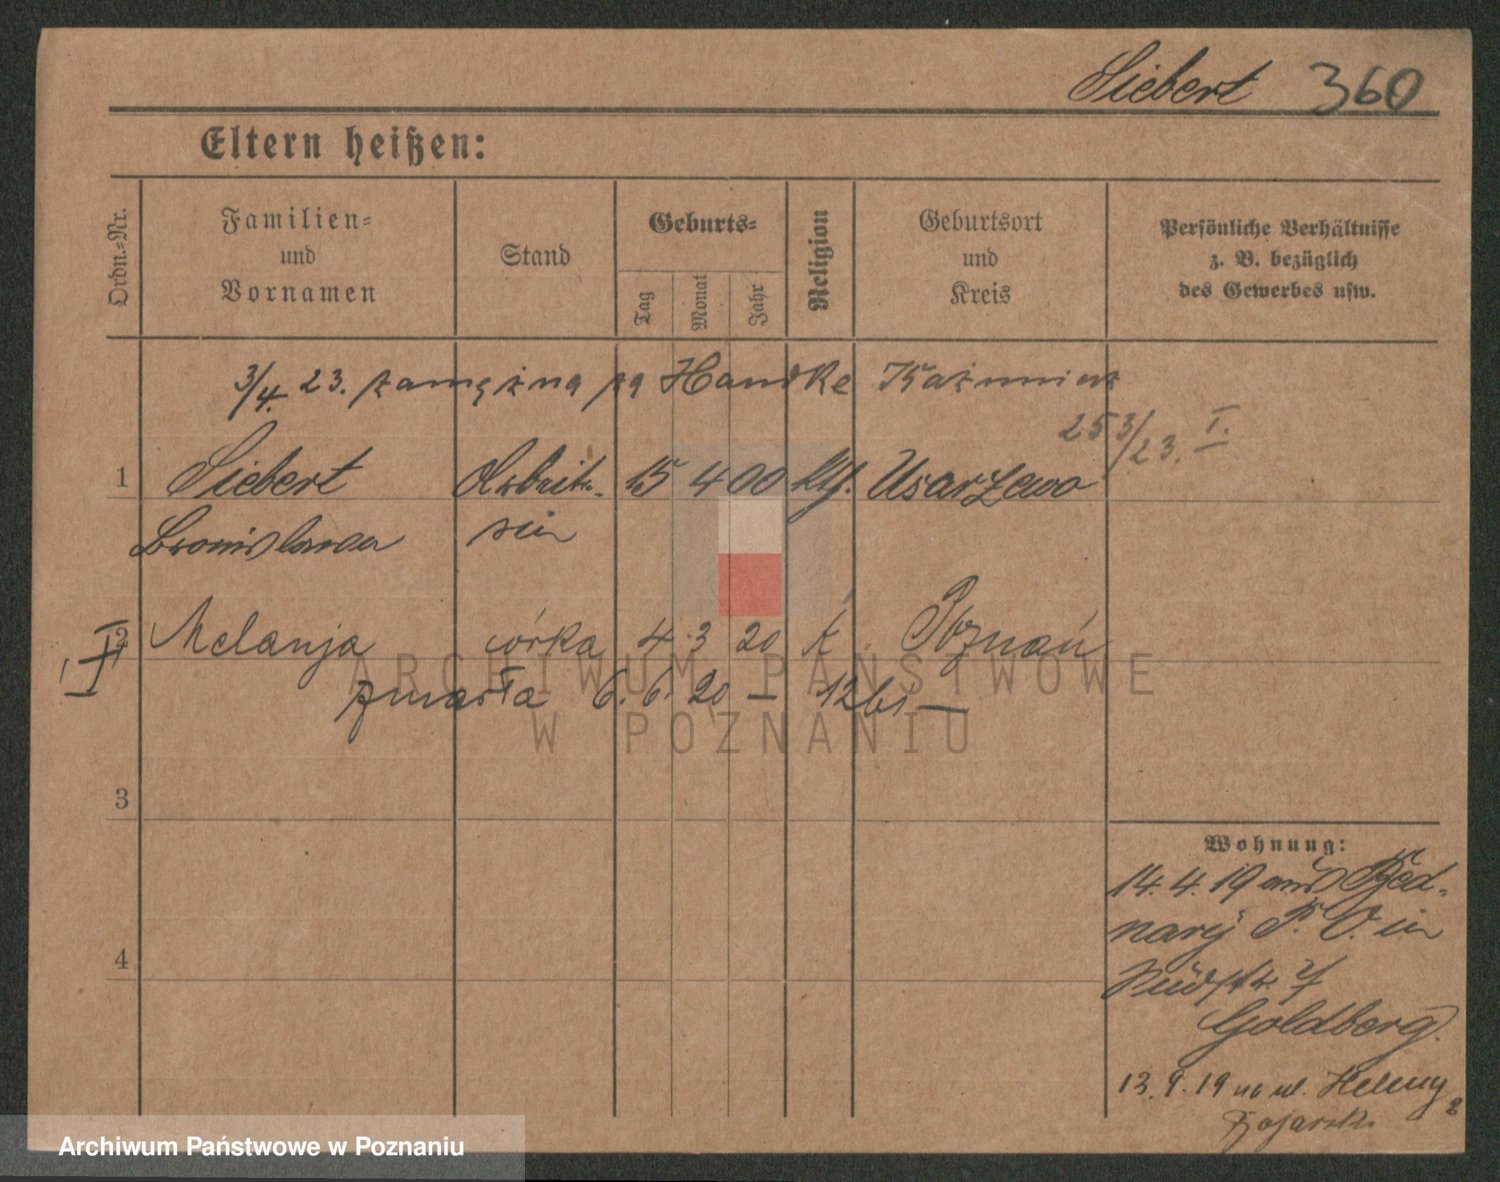 Siebert 360
Eltern heißen:
Ordn.-Nr.
Familien-
und
Vornamen
Stand
Geburts-
Tag
Monat
Jahr
Religion
Geburtsort
und
Kreis
Persönliche Verhältnisse
z. B. bezüglich
des Gewerbes usw.
3/4. 23. zamężna za Handke Kaźmierz
253/23. I.
1 Siebert Arbeite- 15 4 00 ktf. Usarzewo
Bronislawa rin
2 Melanja córka 4 3 20 k. Poznań
zmarła 6. 6. 20 — 12 bi —
3
4
Wohnung:
14. 4. 19 aus Bed-
nary P. O. in
Südstr. 7
Goldberg.
13. 9. 19 na ul. Heleny 2
ARCHIWUM PAŃSTWOWE
W POZNANIU
Archiwum Państwowe w Poznaniu